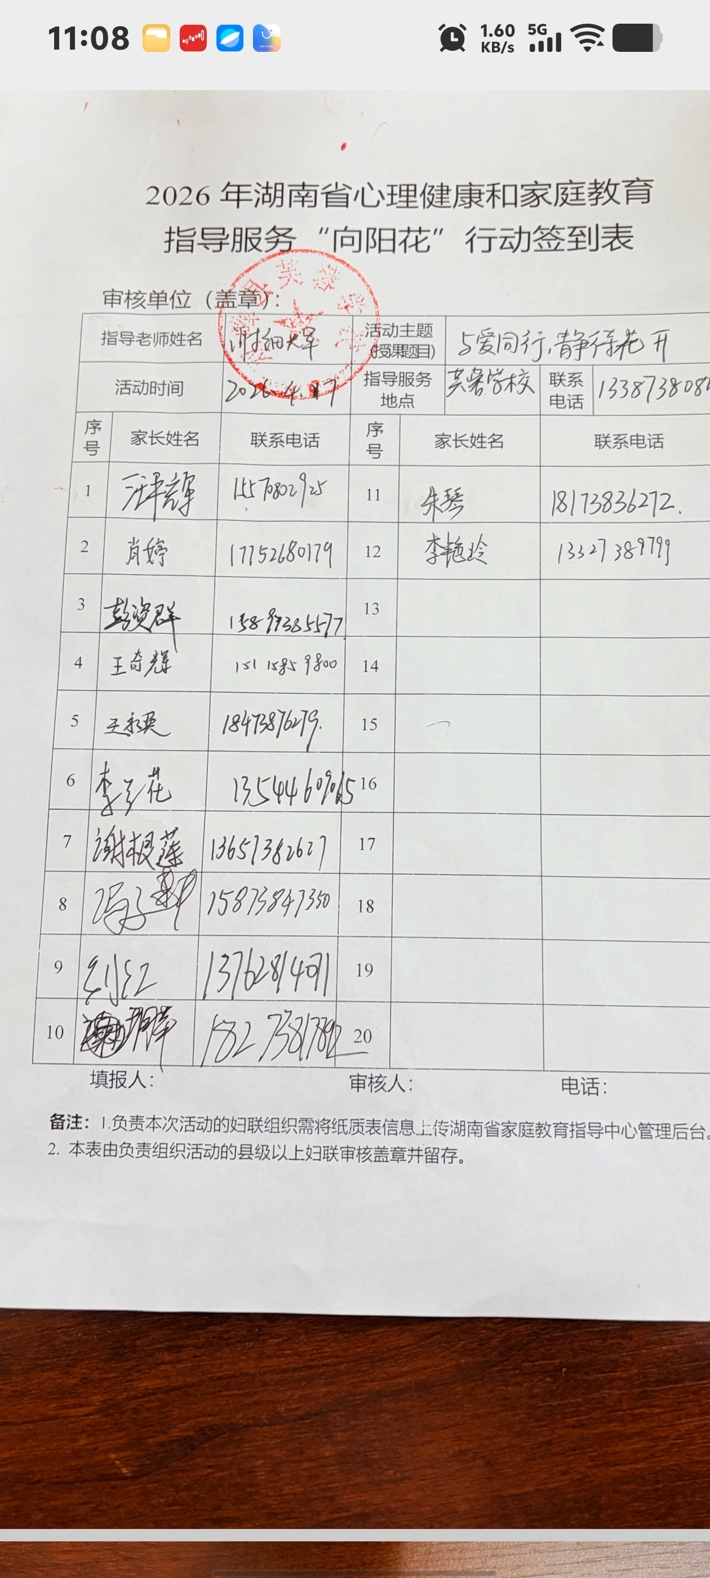 11:08
1.60 KB/s 5G
2026 年湖南省心理健康和家庭教育
指导服务“向阳花”行动签到表
审核单位（盖章）：
指导老师姓名 活动主题(授课题目) 与爱同行，静待花开
活动时间 2026.4. 指导服务地点 芙蓉学校 联系电话 133873808
序号 家长姓名 联系电话 序号 家长姓名 联系电话
1 15570802925 11 朱琴 18173836272.
2 肖婷 17752680179 12 李艳玲 13327389799
3 彭资群 15893385577 13
4 王奇辉 151 1585 9800 14
5 王永英 18473876279. 15
6 李 花 16
7 谢根莲 13657382627 17
8 冯子 15873847350 18
9 刘红 13762814071 19
10 20
填报人： 审核人： 电话：
备注：1.负责本次活动的妇联组织需将纸质表信息上传湖南省家庭教育指导中心管理后台。
2. 本表由负责组织活动的县级以上妇联审核盖章并留存。